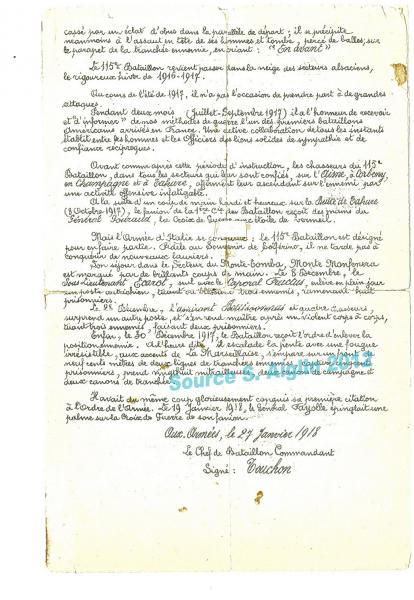 cassé par un éclat d'obus dans la parallèle de départ; il se précipite
néanmoins à l'assaut en tête de ses hommes et tombe, percé de balles, sur
le parapet de la tranchée ennemie, en criant: "En avant"
Le 115e Bataillon revient passer dans la neige des secteurs alsaciens,
le rigoureux hiver de 1916-1917.
Au cours de l'été de 1917, il n'a pas l'occasion de prendre part à de grandes
attaques.
Pendant deux mois (Juillet-Septembre 1917) il a l'honneur de recevoir
et "d'informer" de nos méthodes de guerre l'un des premiers bataillons
américains arrivés en France. Une active collaboration de tous les instants
établit entre les hommes et les Officiers des liens solides de sympathie et de
confiance réciproques.
Avant comme après cette période d'instruction, les chasseurs du 115e
Bataillon, dans tous les secteurs qui leur sont confiés, sur l'Aisne, à Corbeny,
en Champagne et à Tahure, affirment leur ascendant sur l'ennemi par
une activité offensive infatigable.
A la suite d'un coup de main hardi et heureux sur la Butte de Tahure
(8 Octobre 1917), le fanion de la 1ère Cie du Bataillon reçoit des mains du
Général Gouraud, la Croix de Guerre avec étoile de vermeil.
Mais l'Armée d'Italie se constitue; le 115e Bataillon est désigné
pour en faire partie. Fidèle au Souvenir de Solférino, il ne tarde pas à
conquérir de nouveaux lauriers.
Son séjour dans le Secteur du Monte-Tomba, Monte Monfenera
est marqué par de brillants coups de main. Le 8 Décembre, le
Sous-lieutenant suivi avec le Caporal enlève en plein jour
un poste autrichien, tuant ou blessant trois ennemis, ramenant huit
prisonniers.
Le 28 Décembre, l'adjudant et quatre chasseurs,
surprend un autre poste, et s'en rend maître après un violent corps à corps,
tuant trois ennemis, faisant deux prisonniers.
Enfin, le 30 Décembre 1917, le Bataillon reçoit l'ordre d'enlever la
position ennemie. A l'heure fixée, il escalade la pente avec une fougue
irrésistible, aux accents de la Marseillaise, s'empare sur un front de
neuf cents mètres de deux lignes de tranchées ennemies, capture
prisonniers, prend mitrailleuses, deux canons de campagne et
deux canons de tranchée.
Il avait du même coup glorieusement conquis sa première citation
à l'Ordre de l'Armée. Le 19 Janvier 1918, le Général Fayolle épinglait une
palme sur la Croix de Guerre de son fanion.
Aux Armées, le 27 Janvier 1918
Le Chef de Bataillon Commandant
Signé: Touchon
Source S. Agini 2013